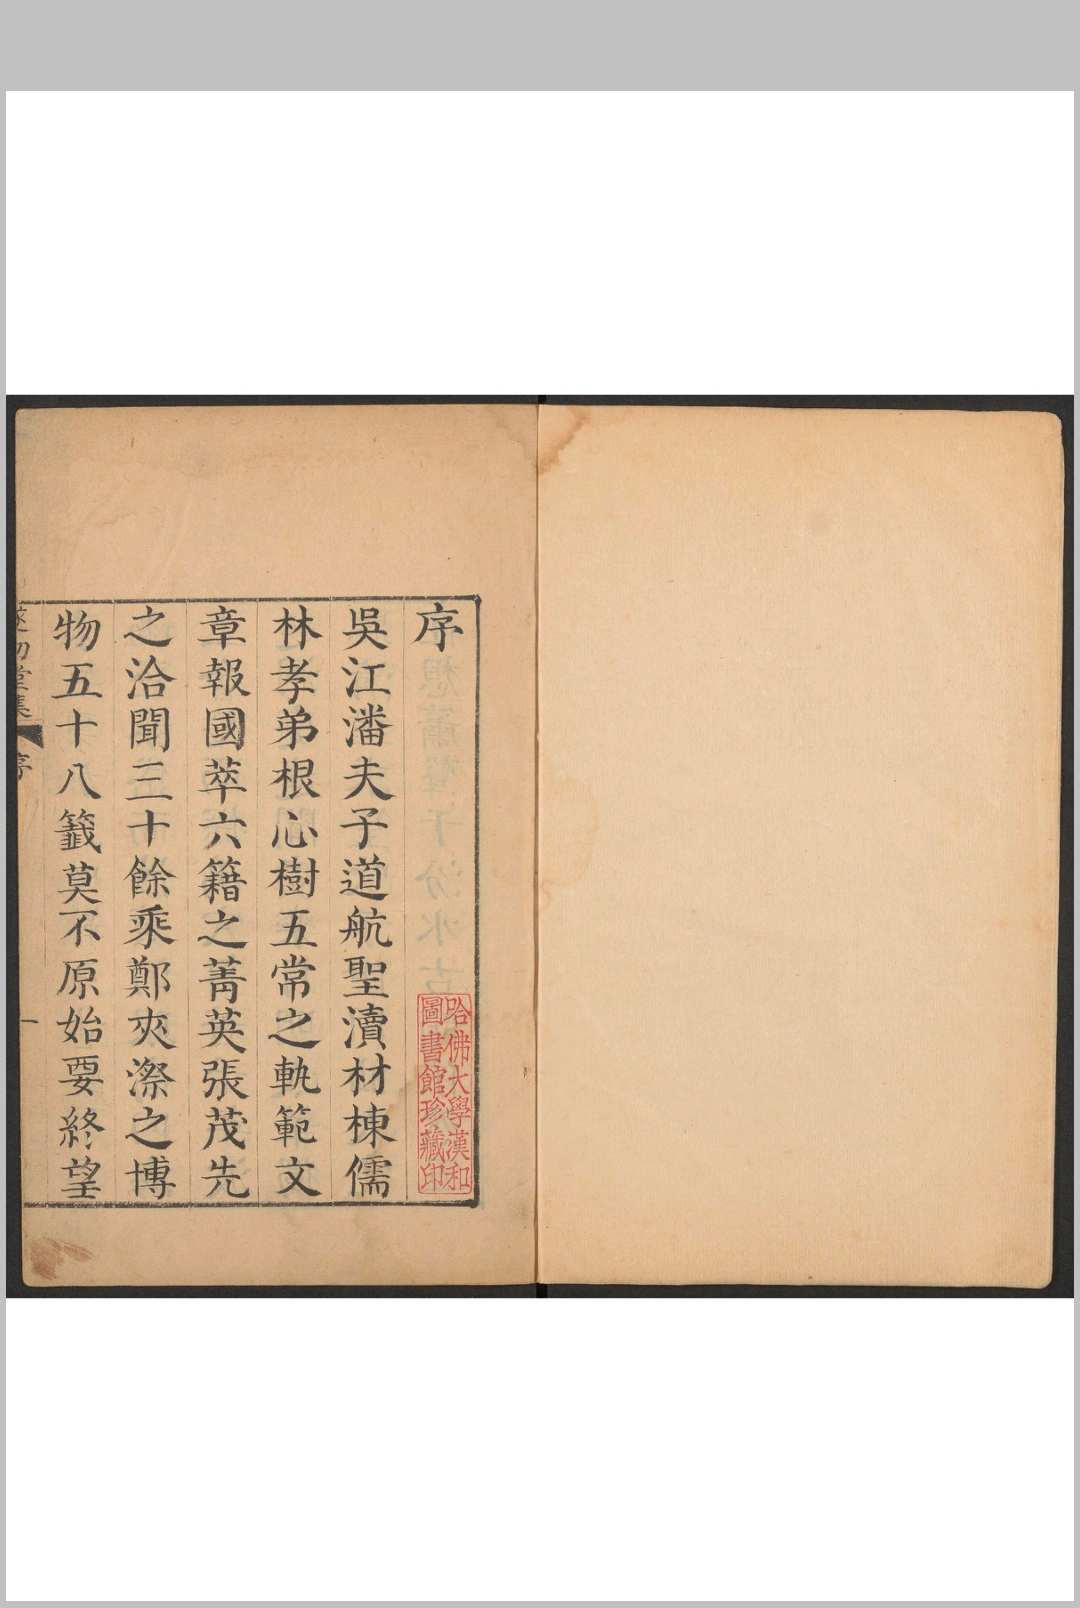 序
吳江潘夫子道航聖瀆材棟儒
林孝弟根心樹五常之軌範文
章報國萃六籍之菁英張茂先
之洽聞三十餘乘鄭夾漈之博
物五十八籤莫不原始要終望
遂初堂集
序
一
哈佛大學漢和
圖書館珍藏印